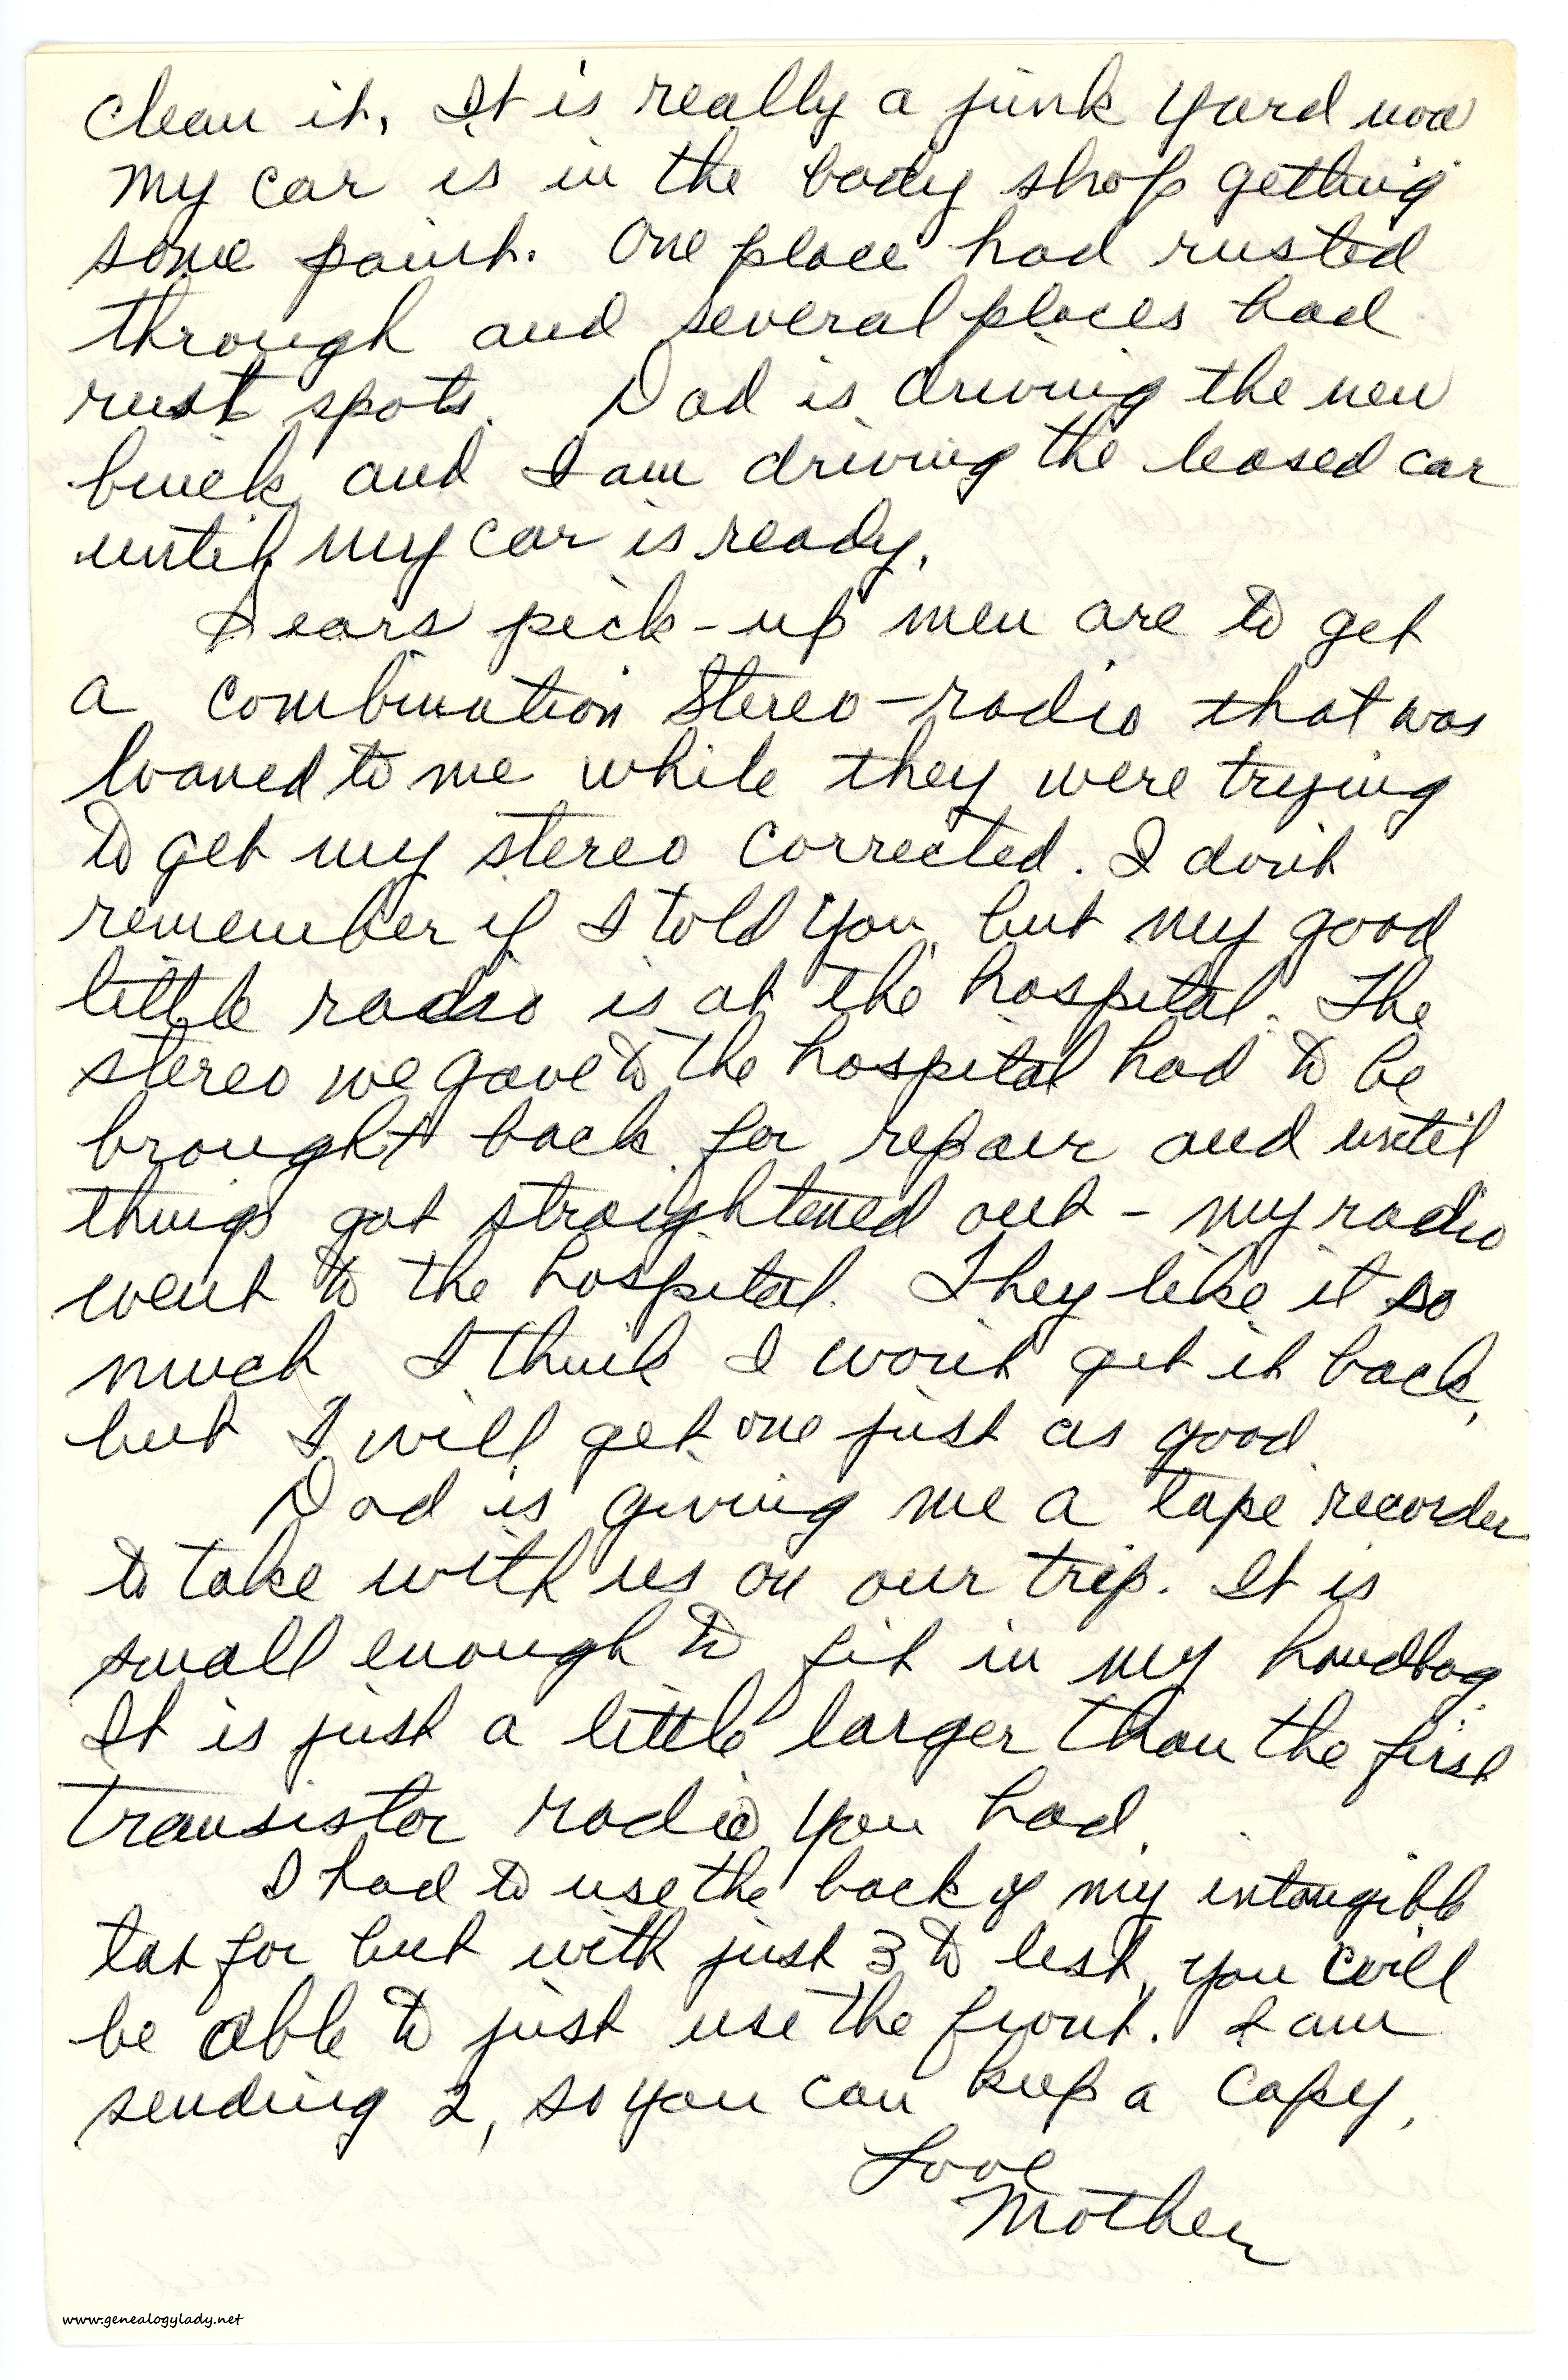 clean it. It is really a junk yard now
my car is in the body shop getting
some paint. One place had rusted
through and several places had
rust spots. Dad is driving the new
buick and I am driving the leased car
until my car is ready.
Sears pick-up men are to get
a combination Stereo-radio that was
loaned to me while they were trying
to get my stereo corrected. I don't
remember if I told you, but my good
little radio is at the hospital. The
stereo we gave to the hospital had to be
brought back for repair and until
things got straightened out - my radio
went to the hospital. They like it so
much I think I won't get it back,
but I will get one just as good.
Dad is giving me a tape recorder
to take with us on our trip. It is
small enough to fit in my handbag.
It is just a little larger than the first
transistor radio you had.
I had to use the back of my intangible
tax for but with just 3 to list, you will
be able to just use the front. I am
sending 2, so you can keep a copy.
Love
Mother
www.genealogylady.net